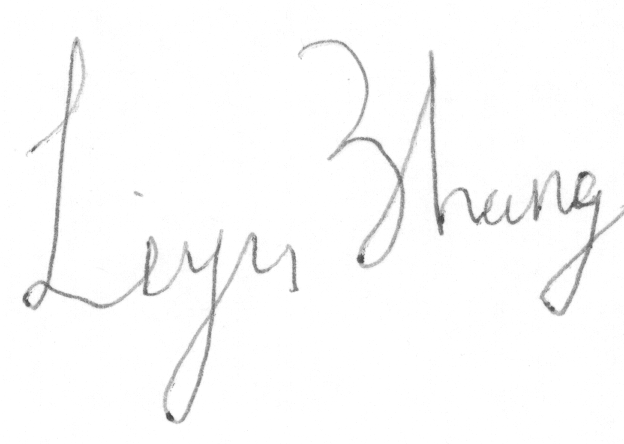 Leiyu Zhang